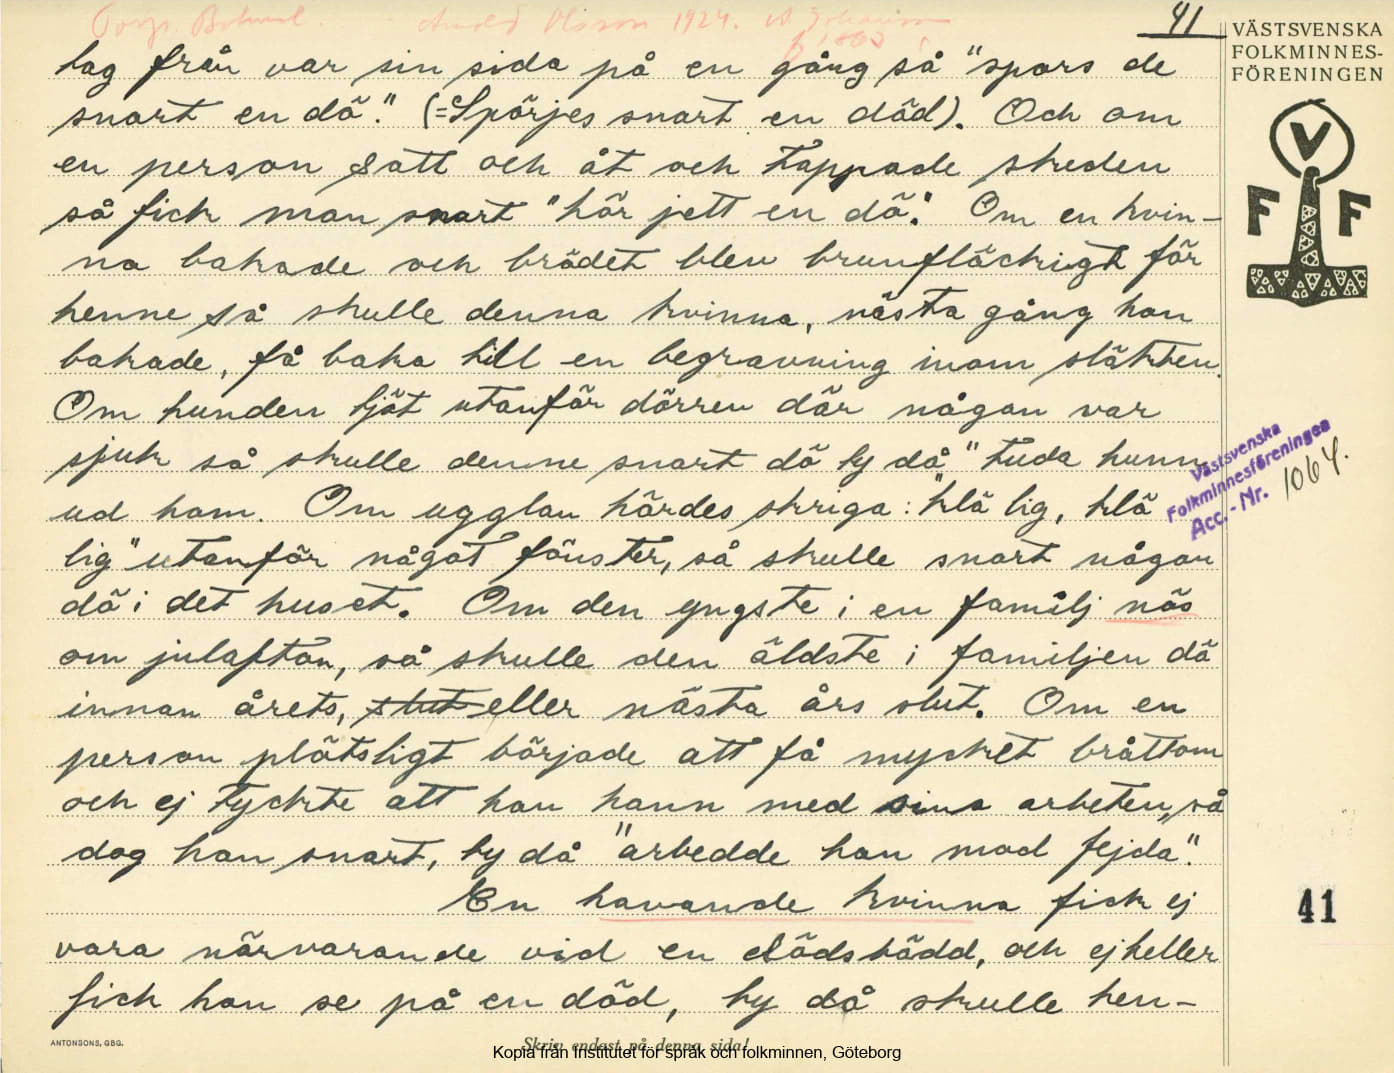 Torp. Bohusl. Arnold Olsson 1924. A. Johansson
f. 1863
41
VÄSTSVENSKA
FOLKMINNES-
FÖRENINGEN
V
F F
lag från var sin sida på en gång så "spors de
snart en dö". (=Spörjes snart en död). Och om
en person satt och åt och tappade skeden
så fick man snart "hör jett en dö". Om en kvin-
na bakade och brödet blev brunfläckigt för
henne så skulle denna kvinna, nästa gång hon
bakade, få baka till en begravning inom släkten.
Om hunden tjöt utanför dörren där någon var
sjuk så skulle denne snart dö ty då "tuda hunn
ud hom. Om ugglan hördes skriga: "klä lig, klä
lig" utanför något fönster, så skulle snart någon
dö i det huset. Om den yngste i en familj nös
om julafton, så skulle den äldste i familjen dö
innan årets, slut eller nästa års slut. Om en
person plötsligt började att få mycket bråttom
och ej tyckte att han hann med sina arbeten, så
dog han snart, ty då "arbedde han mod fejda".
En havande kvinna fick ej
vara närvarande vid en dödsbädd, och ej heller
fick hon se på en död, ty då skulle hen-
Västsvenska
Folkminnesföreningen
Acc. - Nr. 1064.
41
ANTONSONS, GBG.
Skriv endast på denna sida!
Kopia från Institutet för språk och folkminnen, Göteborg